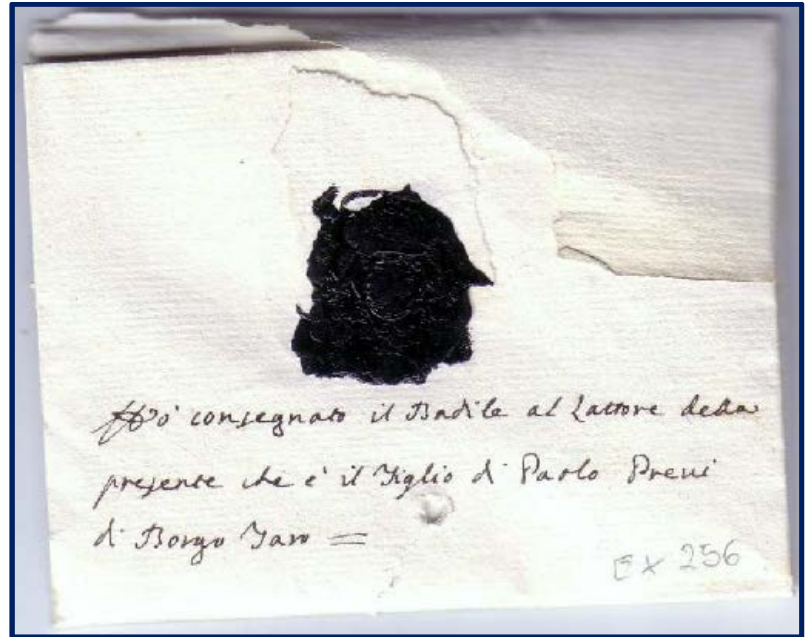 Hò consegnato il Badile al Lattore della
presente che è il Figlio di Paolo Previ
di Borgo Taro =
EX 256